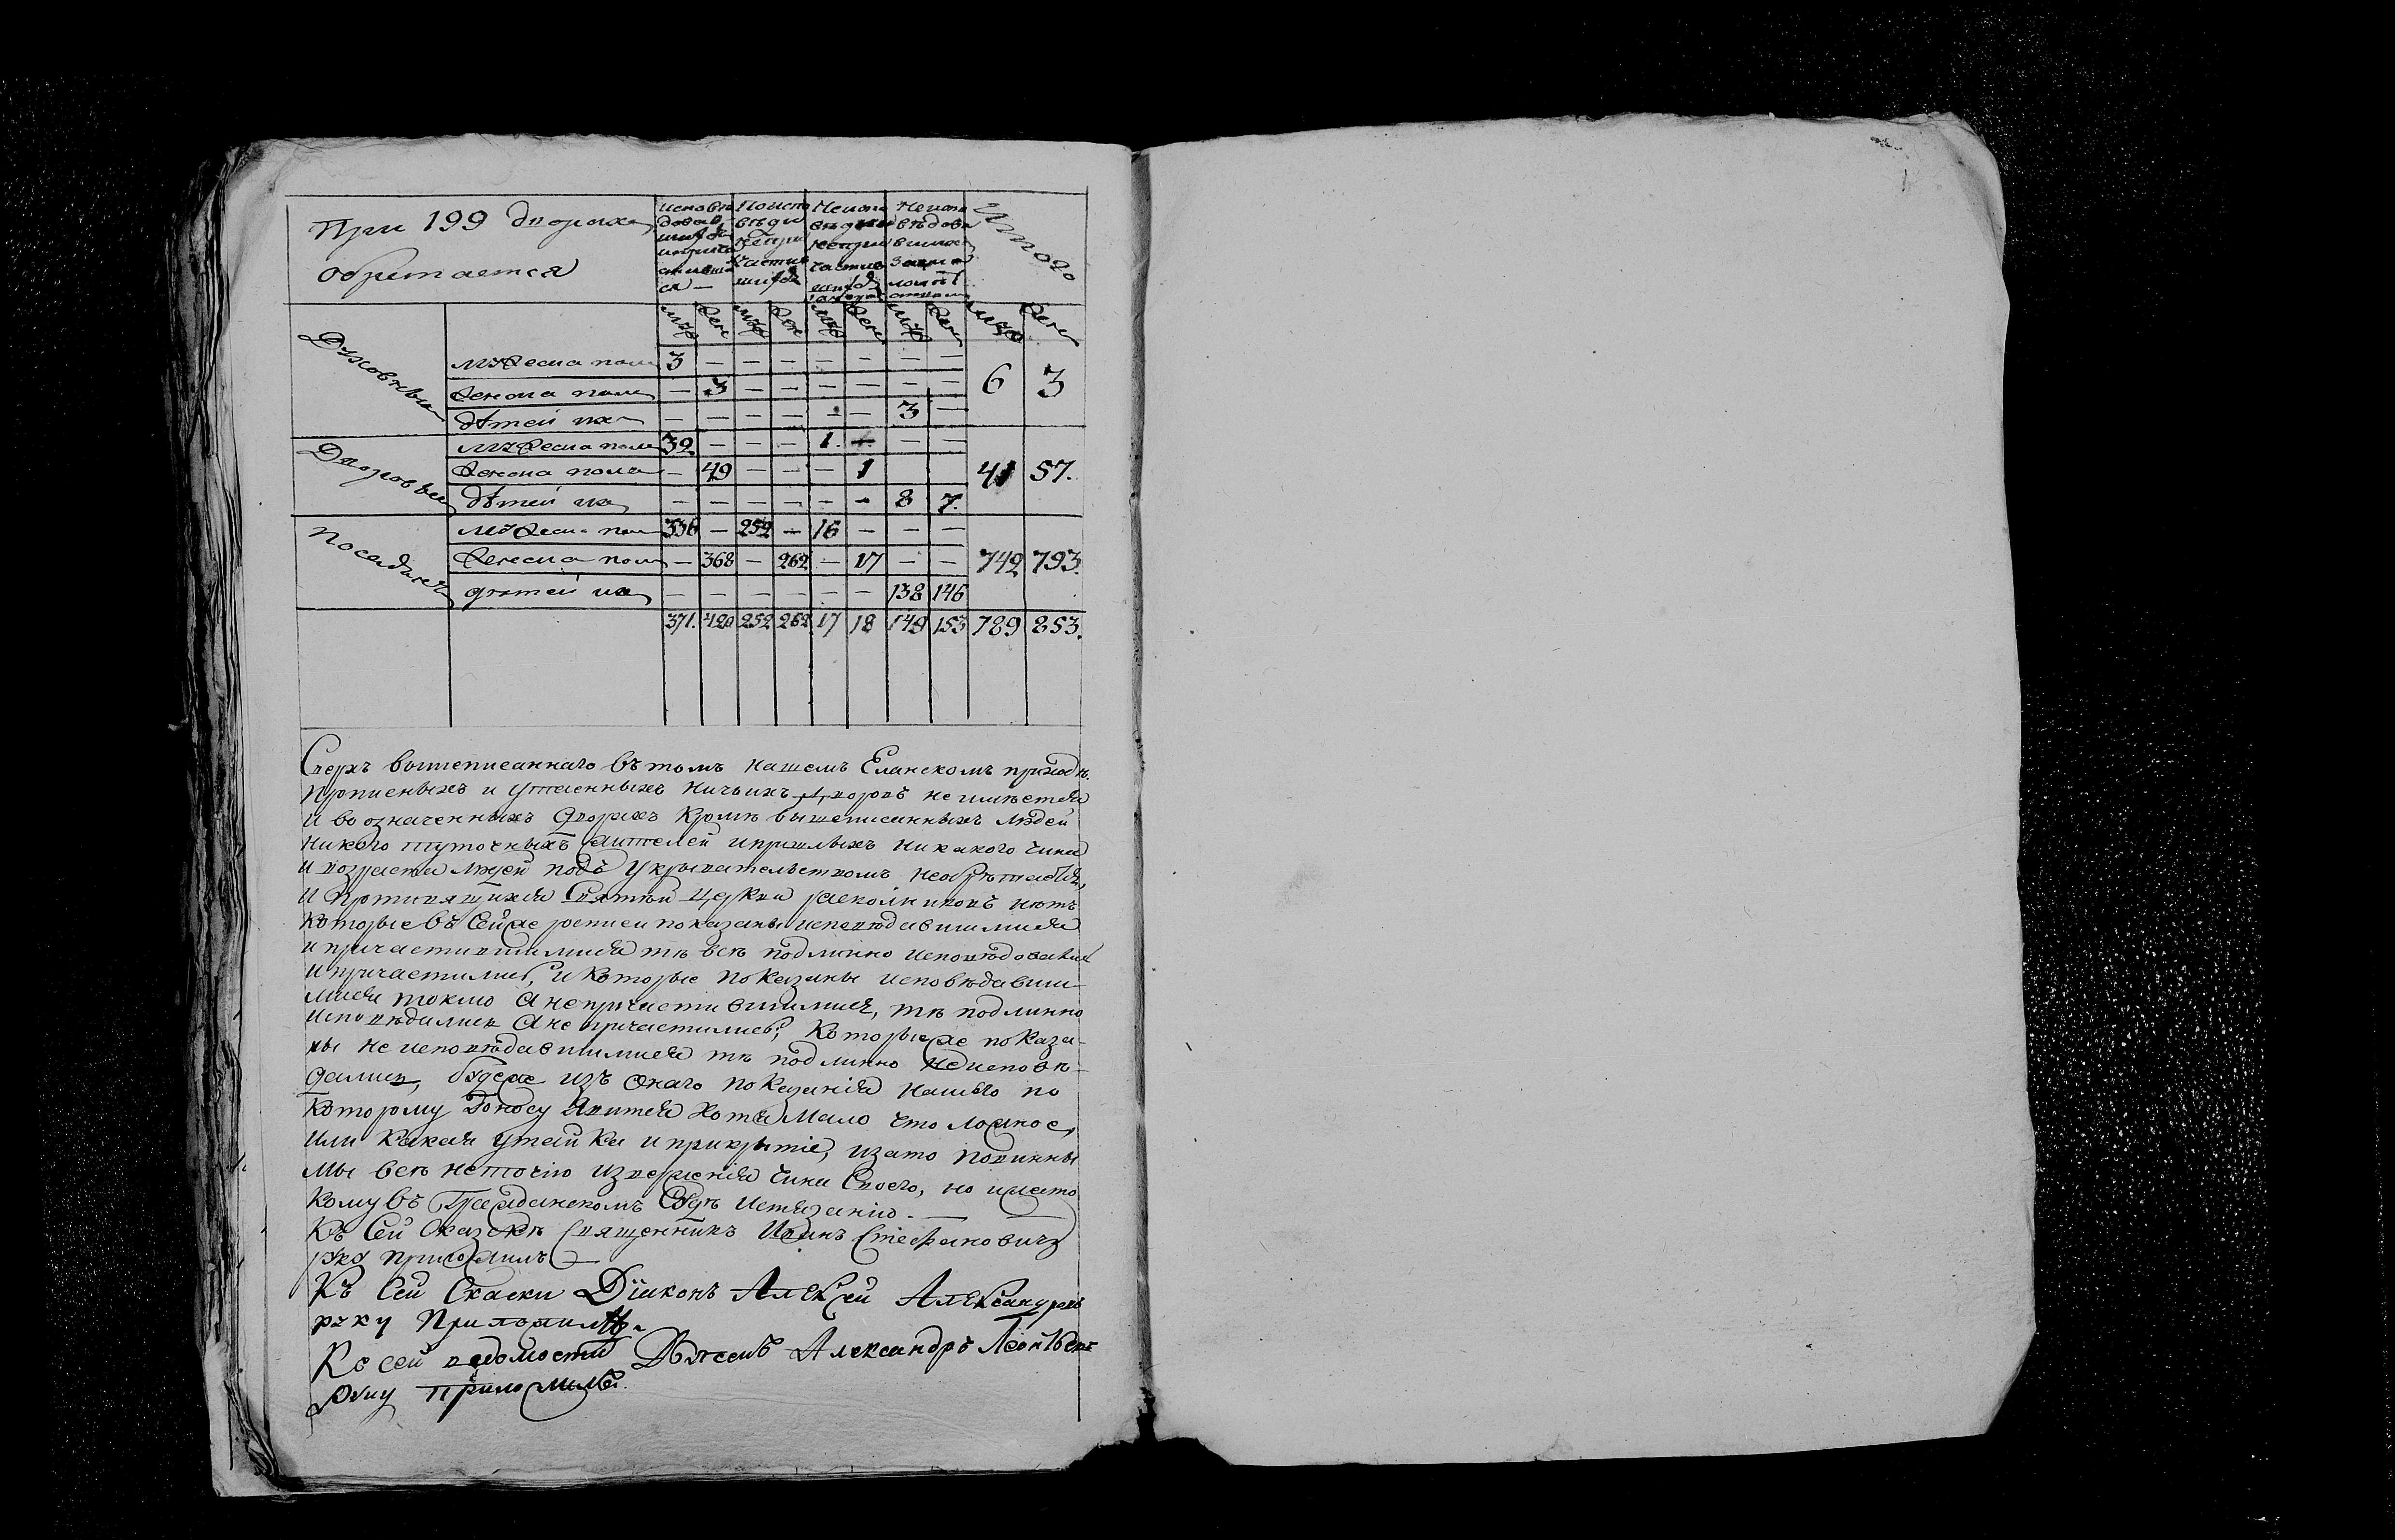 При 199 дворахъ
обретается
исповѣ
довав
шихся
и прича
стивших
ся —
Исповѣдо
вавших
не при
частив
шихся
Неиспо
вѣдав
не при
частив
шихся
Неиспо
вѣдова
вшихся
за мало
лѣтст
Итого
муж жен муж жен муж жен муж жен муж жен
Духовныя мужеска пол 3 — — — — — — — 6 3
женска пола — 3 — — — — — —
дѣтей их — — — — — — 3 —
Дворовые мужеска пола 32 — — — 1. — — — 41 57.
женска пола — 49 — — — 1
дѣтей их — — — — — — 8 7.
Посадския мужеска пол 336 — 252 — 16 — — — 742 793.
женска пол — 368 — 262 — 17 — —
дѣтей их — — — — — — 138 146
371. 420 252 262 17 18 149 153 789 853.
Сверхъ вышеписаннаго въ томъ нашемъ Еланскомъ приходѣ
прописныхъ и утаенныхъ ничьихъ дворовъ не имѣется
и во означенныхъ дворахъ кромѣ вышеписанныхъ людей
никого туточныхъ жителей и пришлыхъ никакого чина
и возраста людей подъ укрывательствомъ необрѣтается,
и противящихся святѣй церкви расколниковъ нѣтъ
которые въ сей же росписи показаны исповѣдавшимися
и причастившимися тѣ всѣ подлинно исповѣдовались
и причастились, и которые показаны исповѣдавши-
мися токмо а непричастившимися, тѣ подлинно
исповѣдались а не причастились, которые же показа-
ны не исповѣдавшимися тѣ подлинно не исповѣ-
дались, будеже изъ онаго показания нашего по
которому доносу явится хотя мало что ложное,
или какая утайка и прикрытіе, и зато повинны
мы всѣ не точію изверженія чина своего, но и жесто
кому въ гражданскомъ судѣ истязанію. —
Къ сей сказкѣ священникъ Иоанъ Стефановичъ
руку приложилъ
Къ сей скаски Діаконъ Алексей Александровъ
руку приложилъ
Ко сей ведомости Дьячекъ Александръ Леонтьевъ
руку приложилъ.